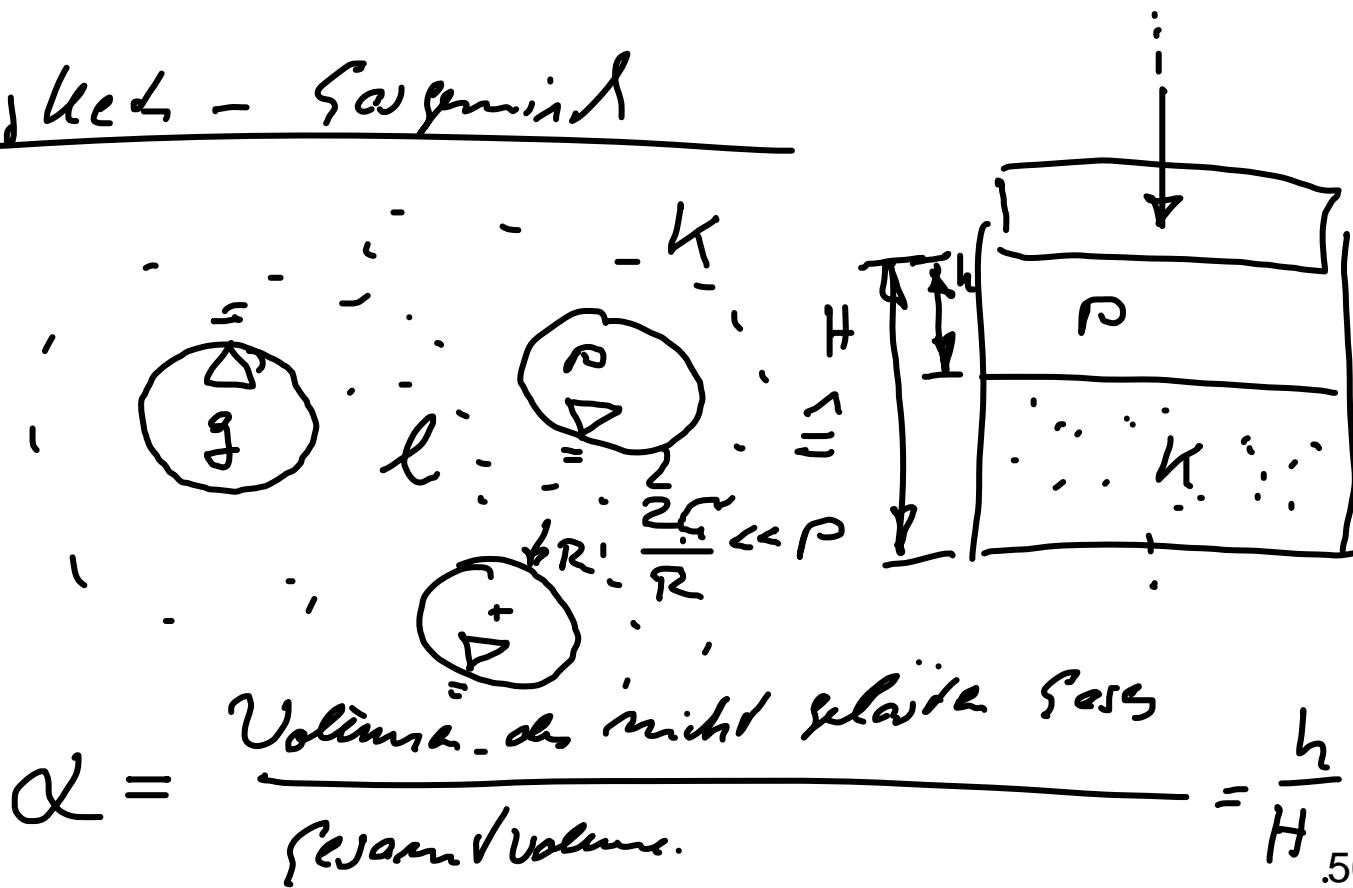 keit - Gasgemisch
K
h
H
p
g
p
l
≙
K
R
2C/R << p
+
α = Volumen des nicht gelösten Gases / Gesamtvolumen. = h/H
.50